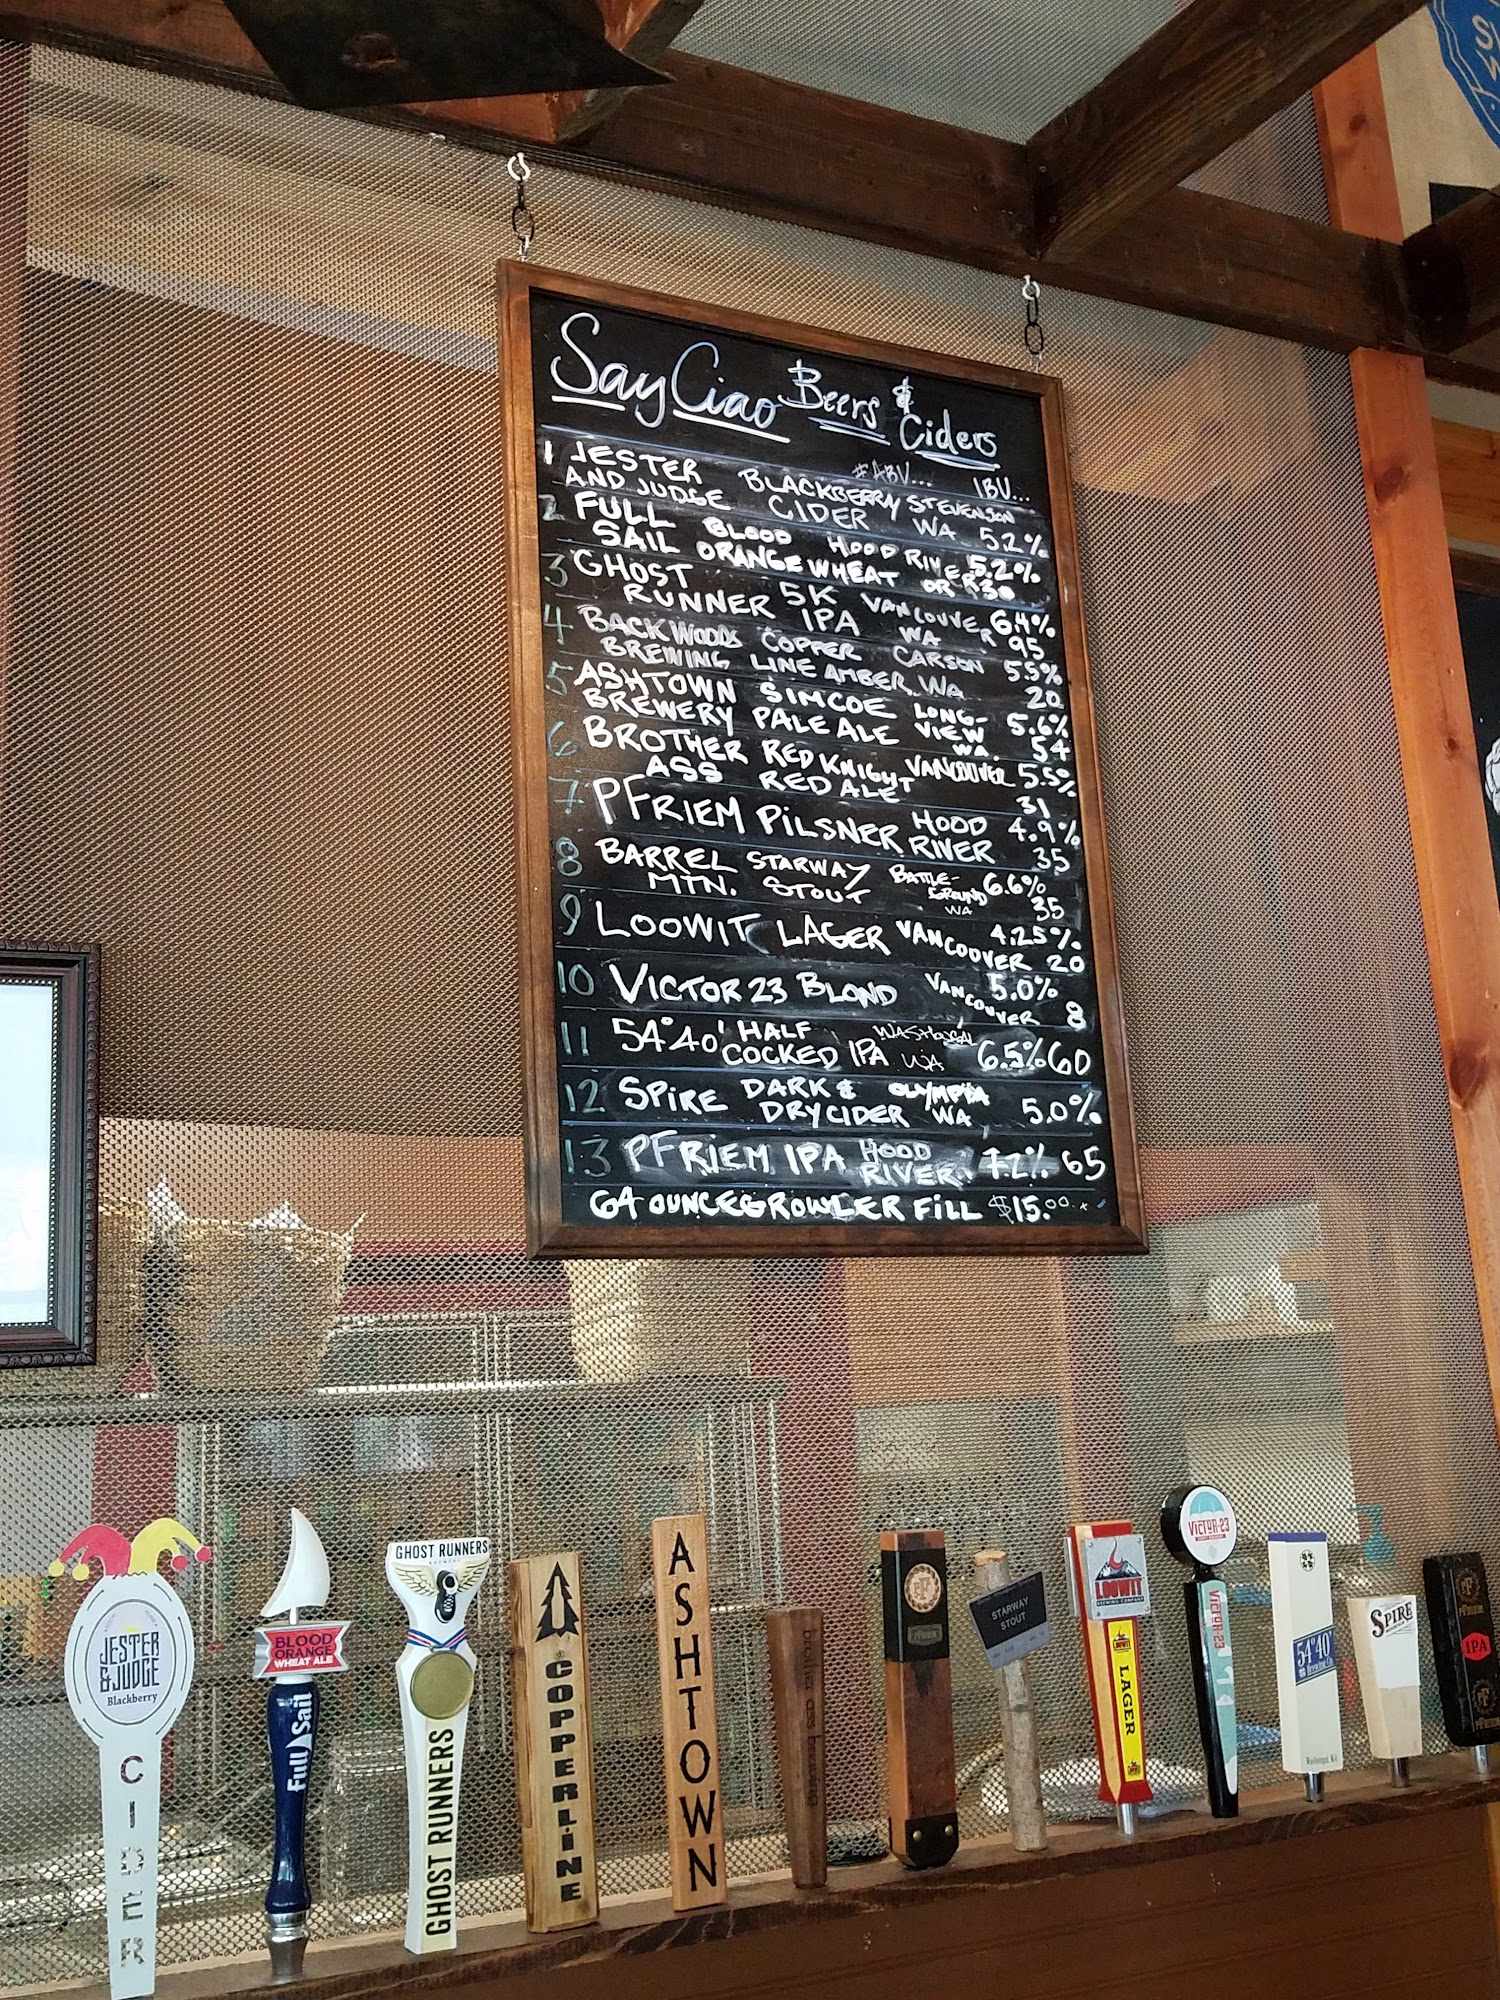 Say Ciao Beers & Ciders
#ABV... IBU...
1 JESTER BLACKBERRY STEVENSON
AND JUDGE CIDER WA 5.2%
2 FULL BLOOD HOOD RIVER 5.2%
SAIL ORANGE WHEAT OR
3 GHOST 5K VANCOUVER 6.4%
RUNNER IPA WA 95
4 BACKWOODS COPPER CARSON 5.5%
BREWING LINE AMBER WA 20
5 ASHTOWN SIMCOE LONG- 5.6%
BREWERY PALE ALE VIEW WA. 54
6 BROTHER RED KNIGHT VANCOUVER 5.5%
ASS RED ALE 31
7 PFRIEM PILSNER HOOD 4.9%
RIVER 35
8 BARREL STARWAY BATTLE- 6.6%
MTN. STOUT GROUND WA 35
9 LOOWIT LAGER VANCOUVER 4.25%
20
10 VICTOR 23 BLOND VANCOUVER 5.0%
8
11 54°40' HALF WASHOUGAL
COCKED IPA WA 6.5% 60
12 SPIRE DARK & OLYMPIA
DRY CIDER WA 5.0%
13 PFRIEM IPA HOOD
RIVER 7.2% 65
64 OUNCE GROWLER FILL $15.00
JESTER
&JUDGE
Blackberry
CIDER
BLOOD
ORANGE
WHEAT ALE
Full Sail
GHOST RUNNERS
BREWERY
GHOST RUNNERS
COPPERLINE
ASHTOWN
brother ass brewing
STARWAY
STOUT
LOOWIT
BREWING COMPANY
LAGER
VICTOR-23
VICTOR-23
54°40'
Brewing Co.
Washougal, WA
SPIRE
PFRIEM
IPA
PFRIEM